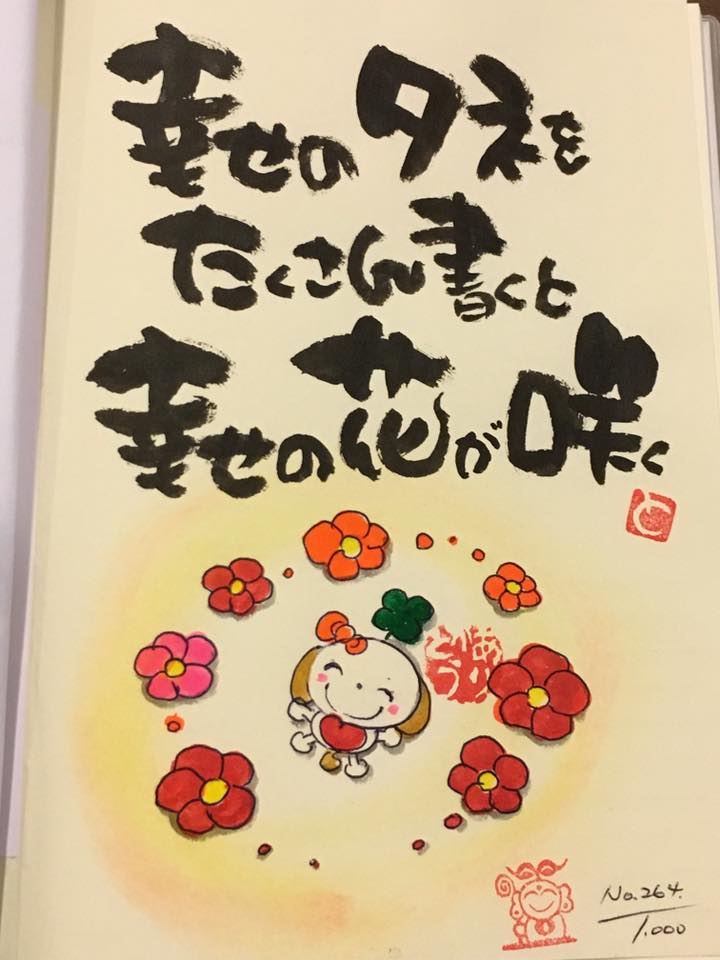 幸せのタネを
たくさん書くと
幸せの花が咲く
と
No.264.
1.000